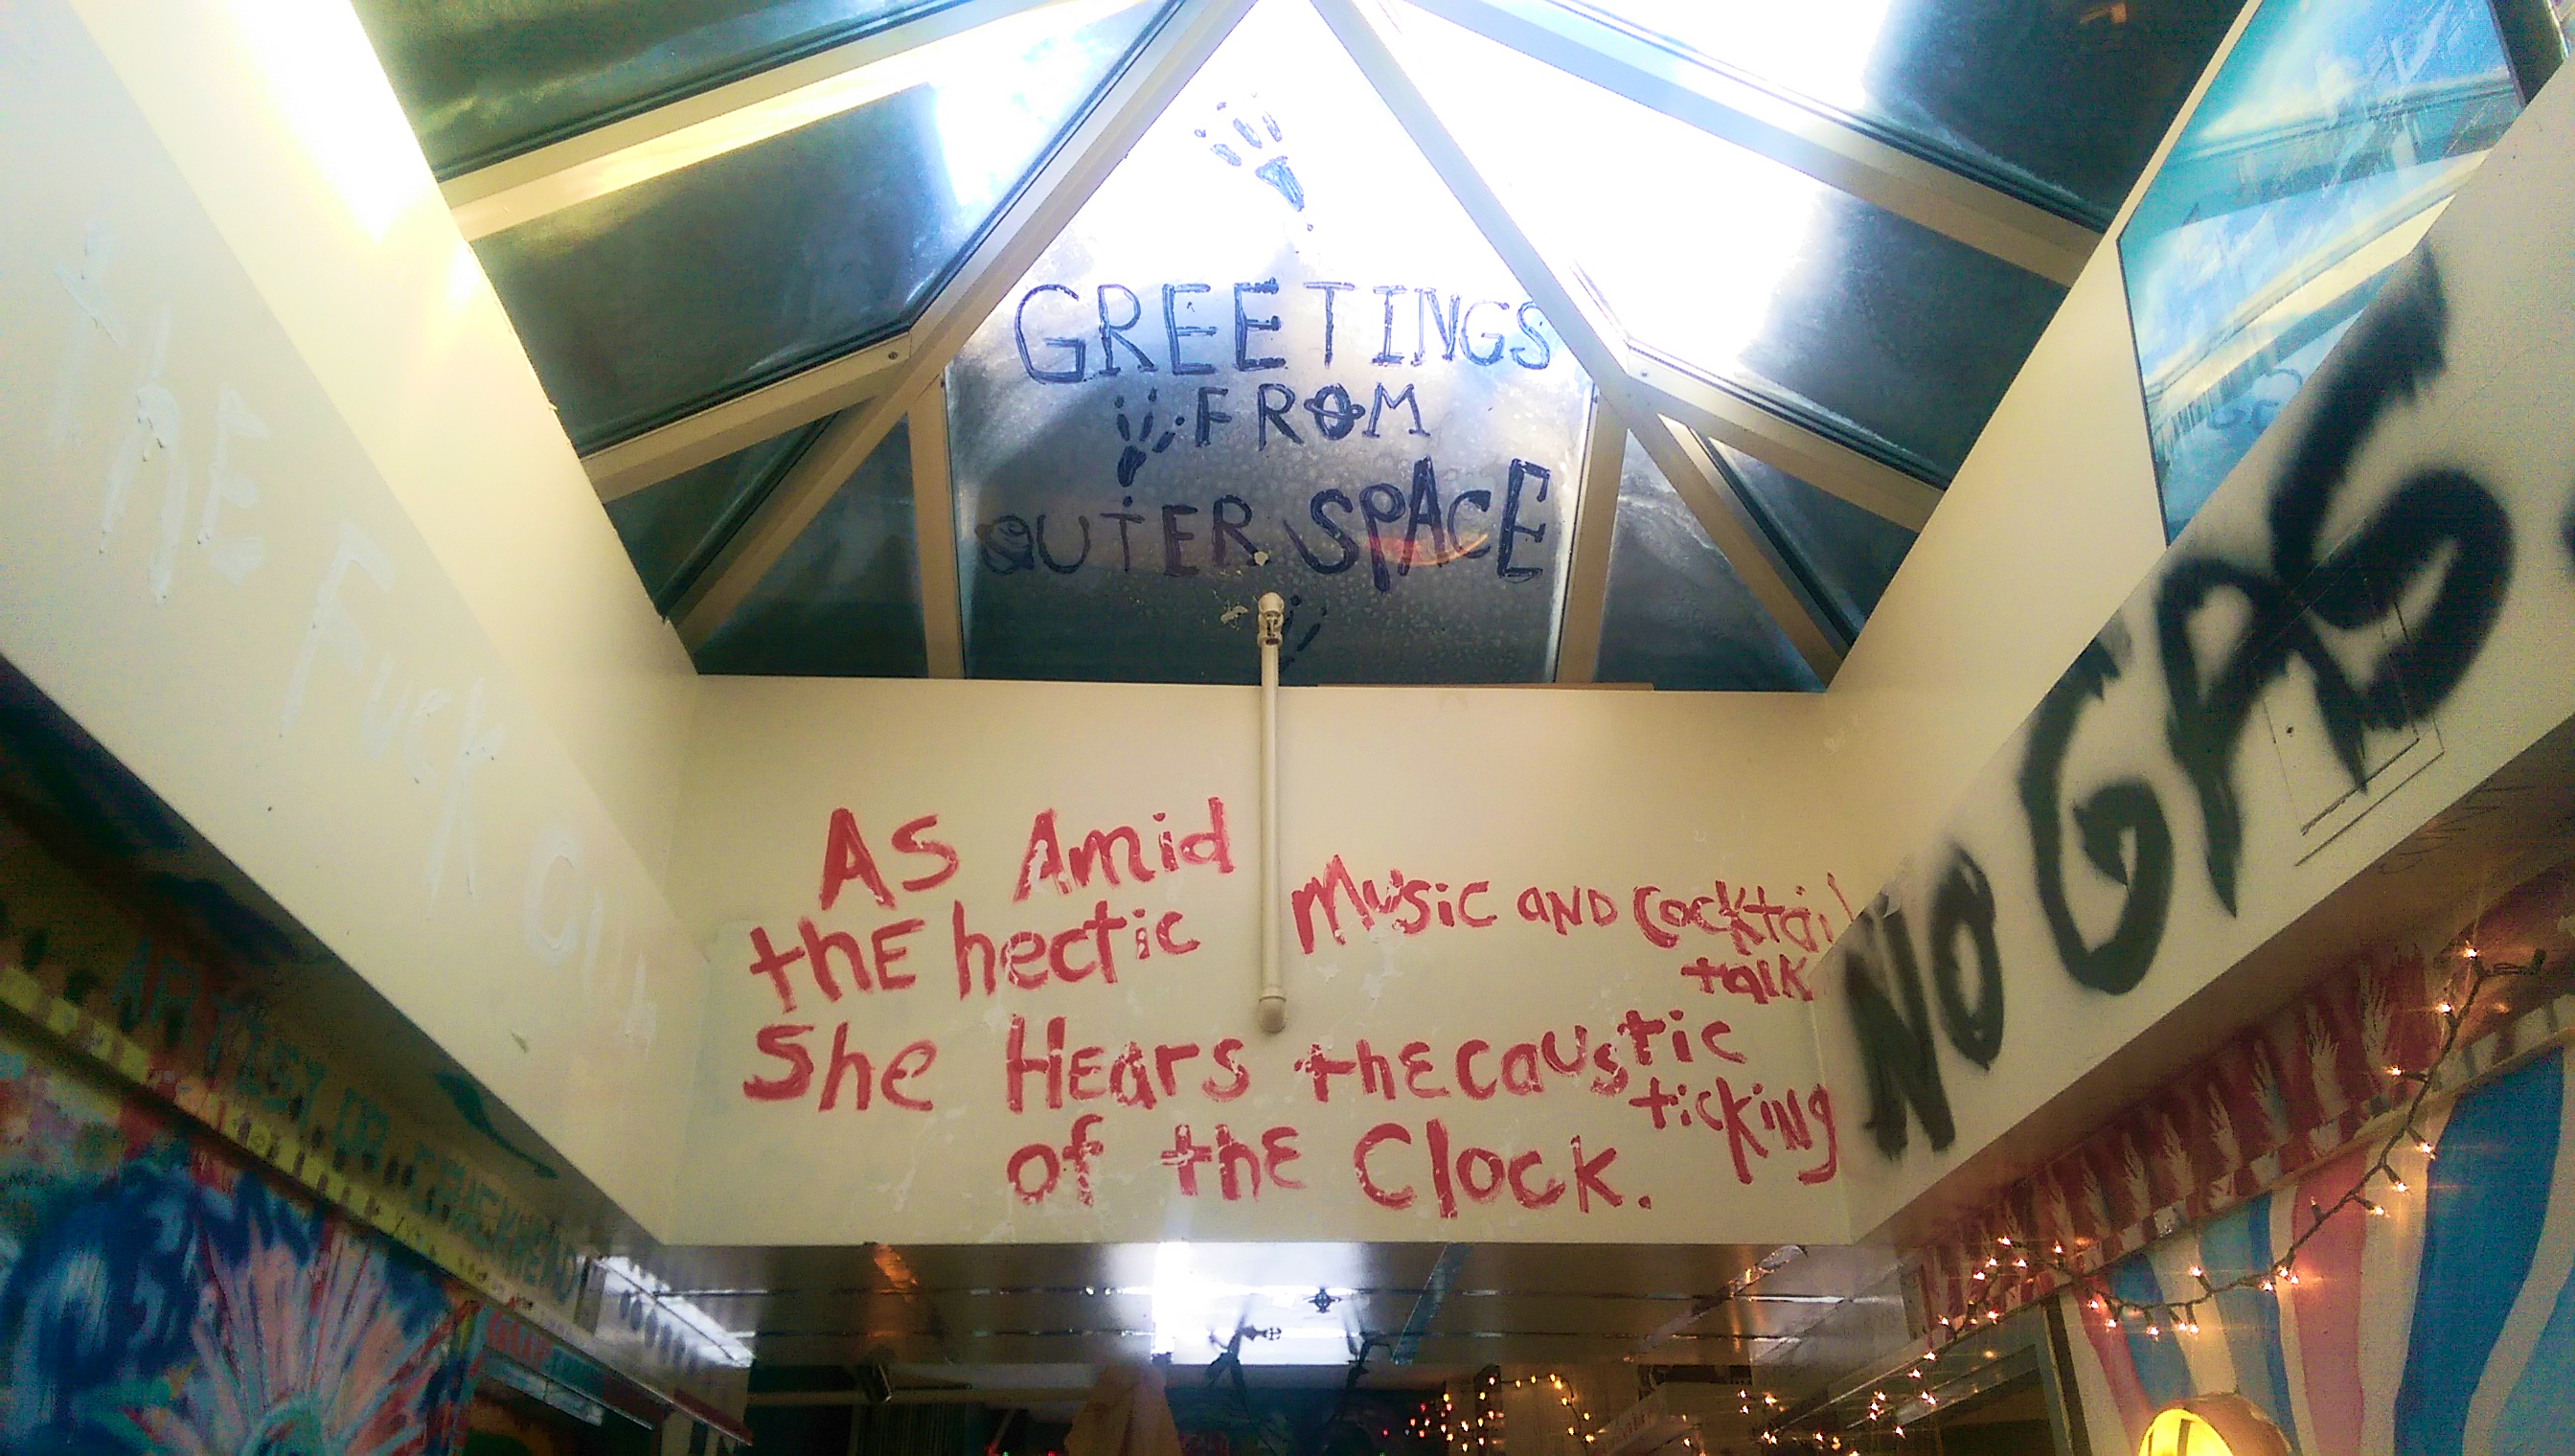 GREETINGS
FROM
OUTER SPACE
THE Fuck
AS Amid
thE hectic Music AND Cocktail
talk
She HEars thE caustic
ticking
of thE Clock.
NO GAS